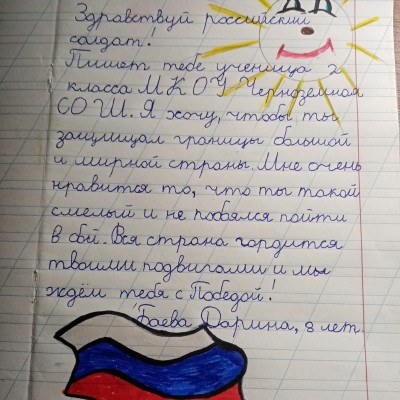 Здравствуй российский
солдат!
Пишет тебе ученица 2
класса МКОУ Черноземная
СОШ. Я хочу, чтобы ты
защищал границы большой
и мирной страны. Мне очень
нравится то, что ты такой
смелый и не побоялся пойти
в бой. Вся страна гордится
твоими подвигами и мы
ждём тебя с Победой!
Баева Дарина, 8 лет.